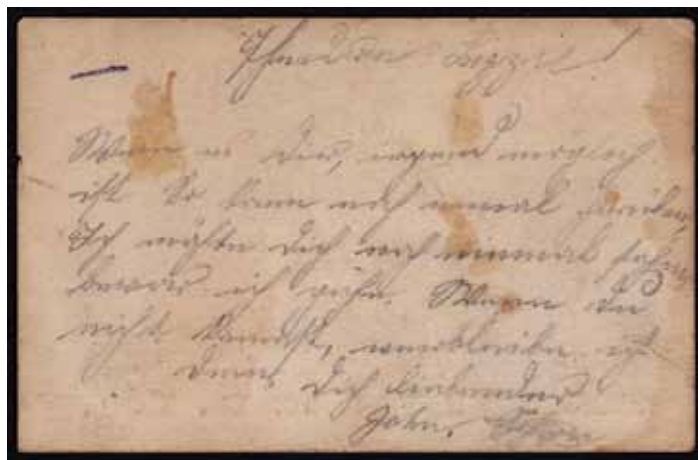 Wenn es Dir, irgend möglich
ist So komm noch einmal
Ich möchte Dich noch einmal sehen
bevor ich gehe. Wenn Du
nicht kommst, verbleibe ich
Dein Dich liebender
John.